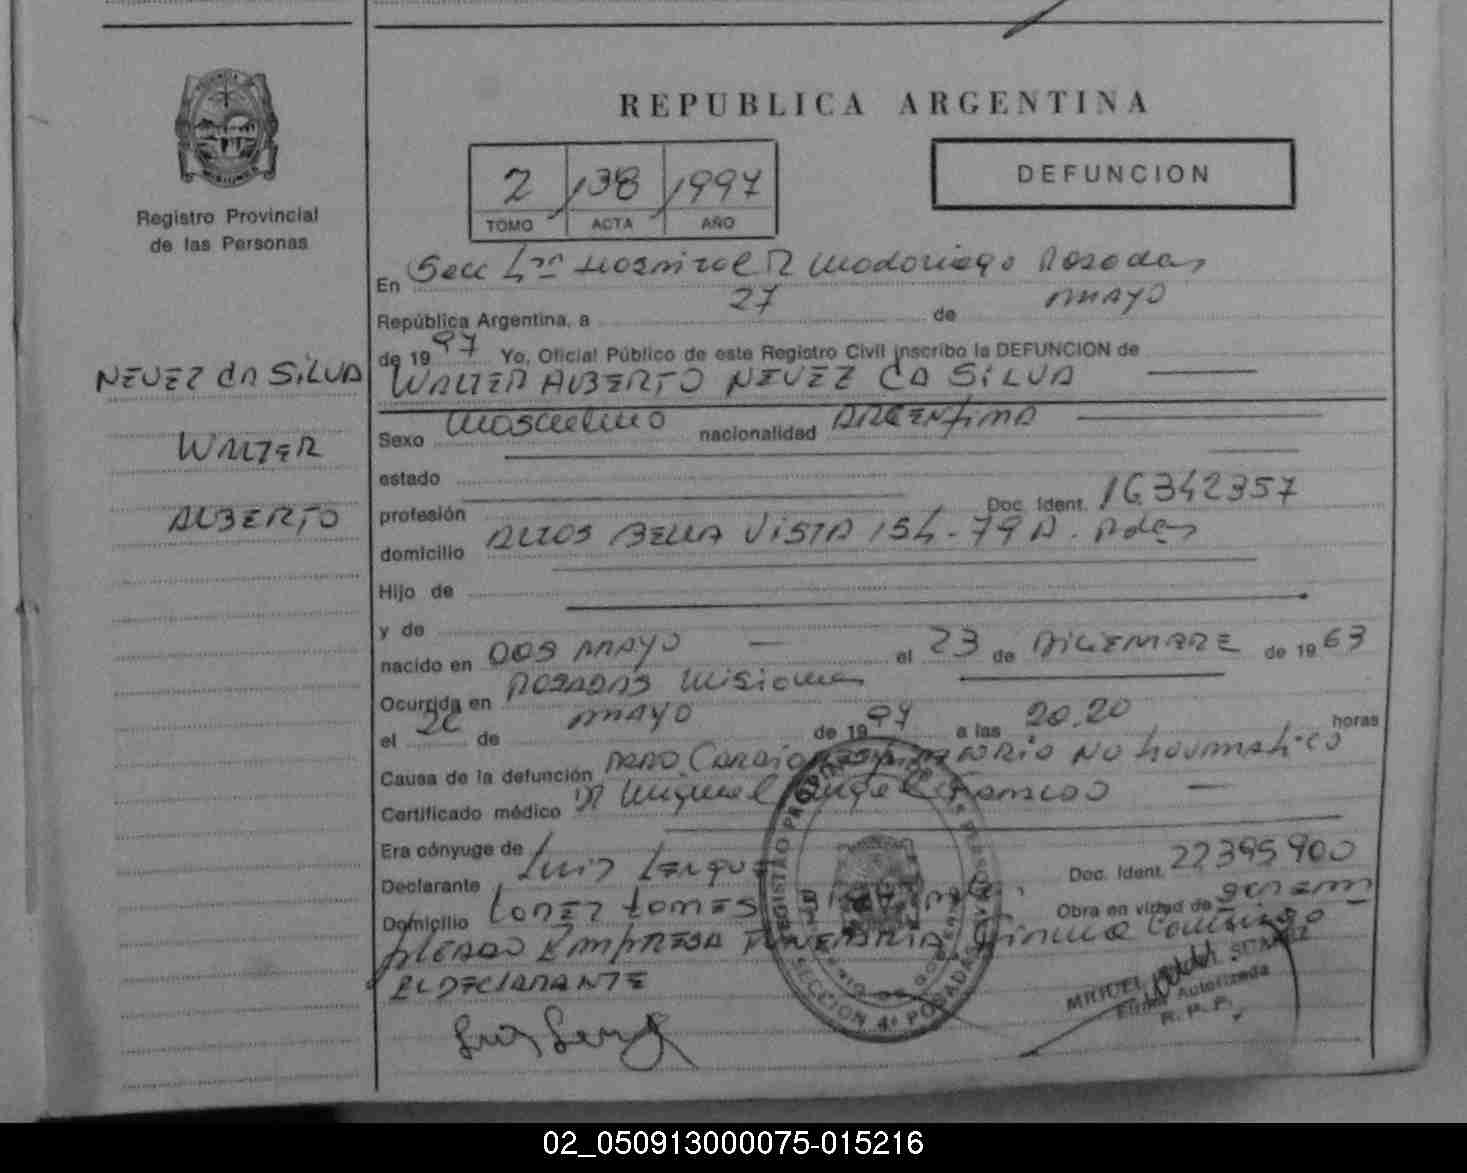 REPUBLICA ARGENTINA
DEFUNCION
2 / 38 / 1997
TOMO ACTA AÑO
Registro Provincial
de las Personas
En Secc 4ta Hospital R Madariaga Posadas
República Argentina, a 27 de mayo
de 1997 Yo, Oficial Público de este Registro Civil inscribo la DEFUNCION de
WALTER ALBERTO NEVEZ da SILVA
NEVEZ da SILVA
WALTER
ALBERTO
Sexo Masculino nacionalidad ARGENTINA
estado
profesión Doc. Ident. 16342357
domicilio ALTOS BELLA VISTA 154-79 A. Pdas
Hijo de
y de
nacido en DOS MAYO el 23 de DICIEMBRE de 1963
Ocurrida en POSADAS Misiones
el 26 de MAYO de 1997 a las 20.20 horas
Causa de la defunción PARO Cardiorespiratorio No traumatico
Certificado médico Dr Miguel Angel
Era cónyuge de
Declarante Luis Doc. Ident. 22395900
Domicilio LOPEZ TORRES Obra en virtud de ser em
pleado EMPRESA FUNERARIA firma conmigo
EL DECLARANTE
REGISTRO PROVINCIAL DE LAS PERSONAS
SECCION 4ª POSADAS
MIGUEL SUAREZ
Firma Autorizada
R. P. P.
02_050913000075-015216